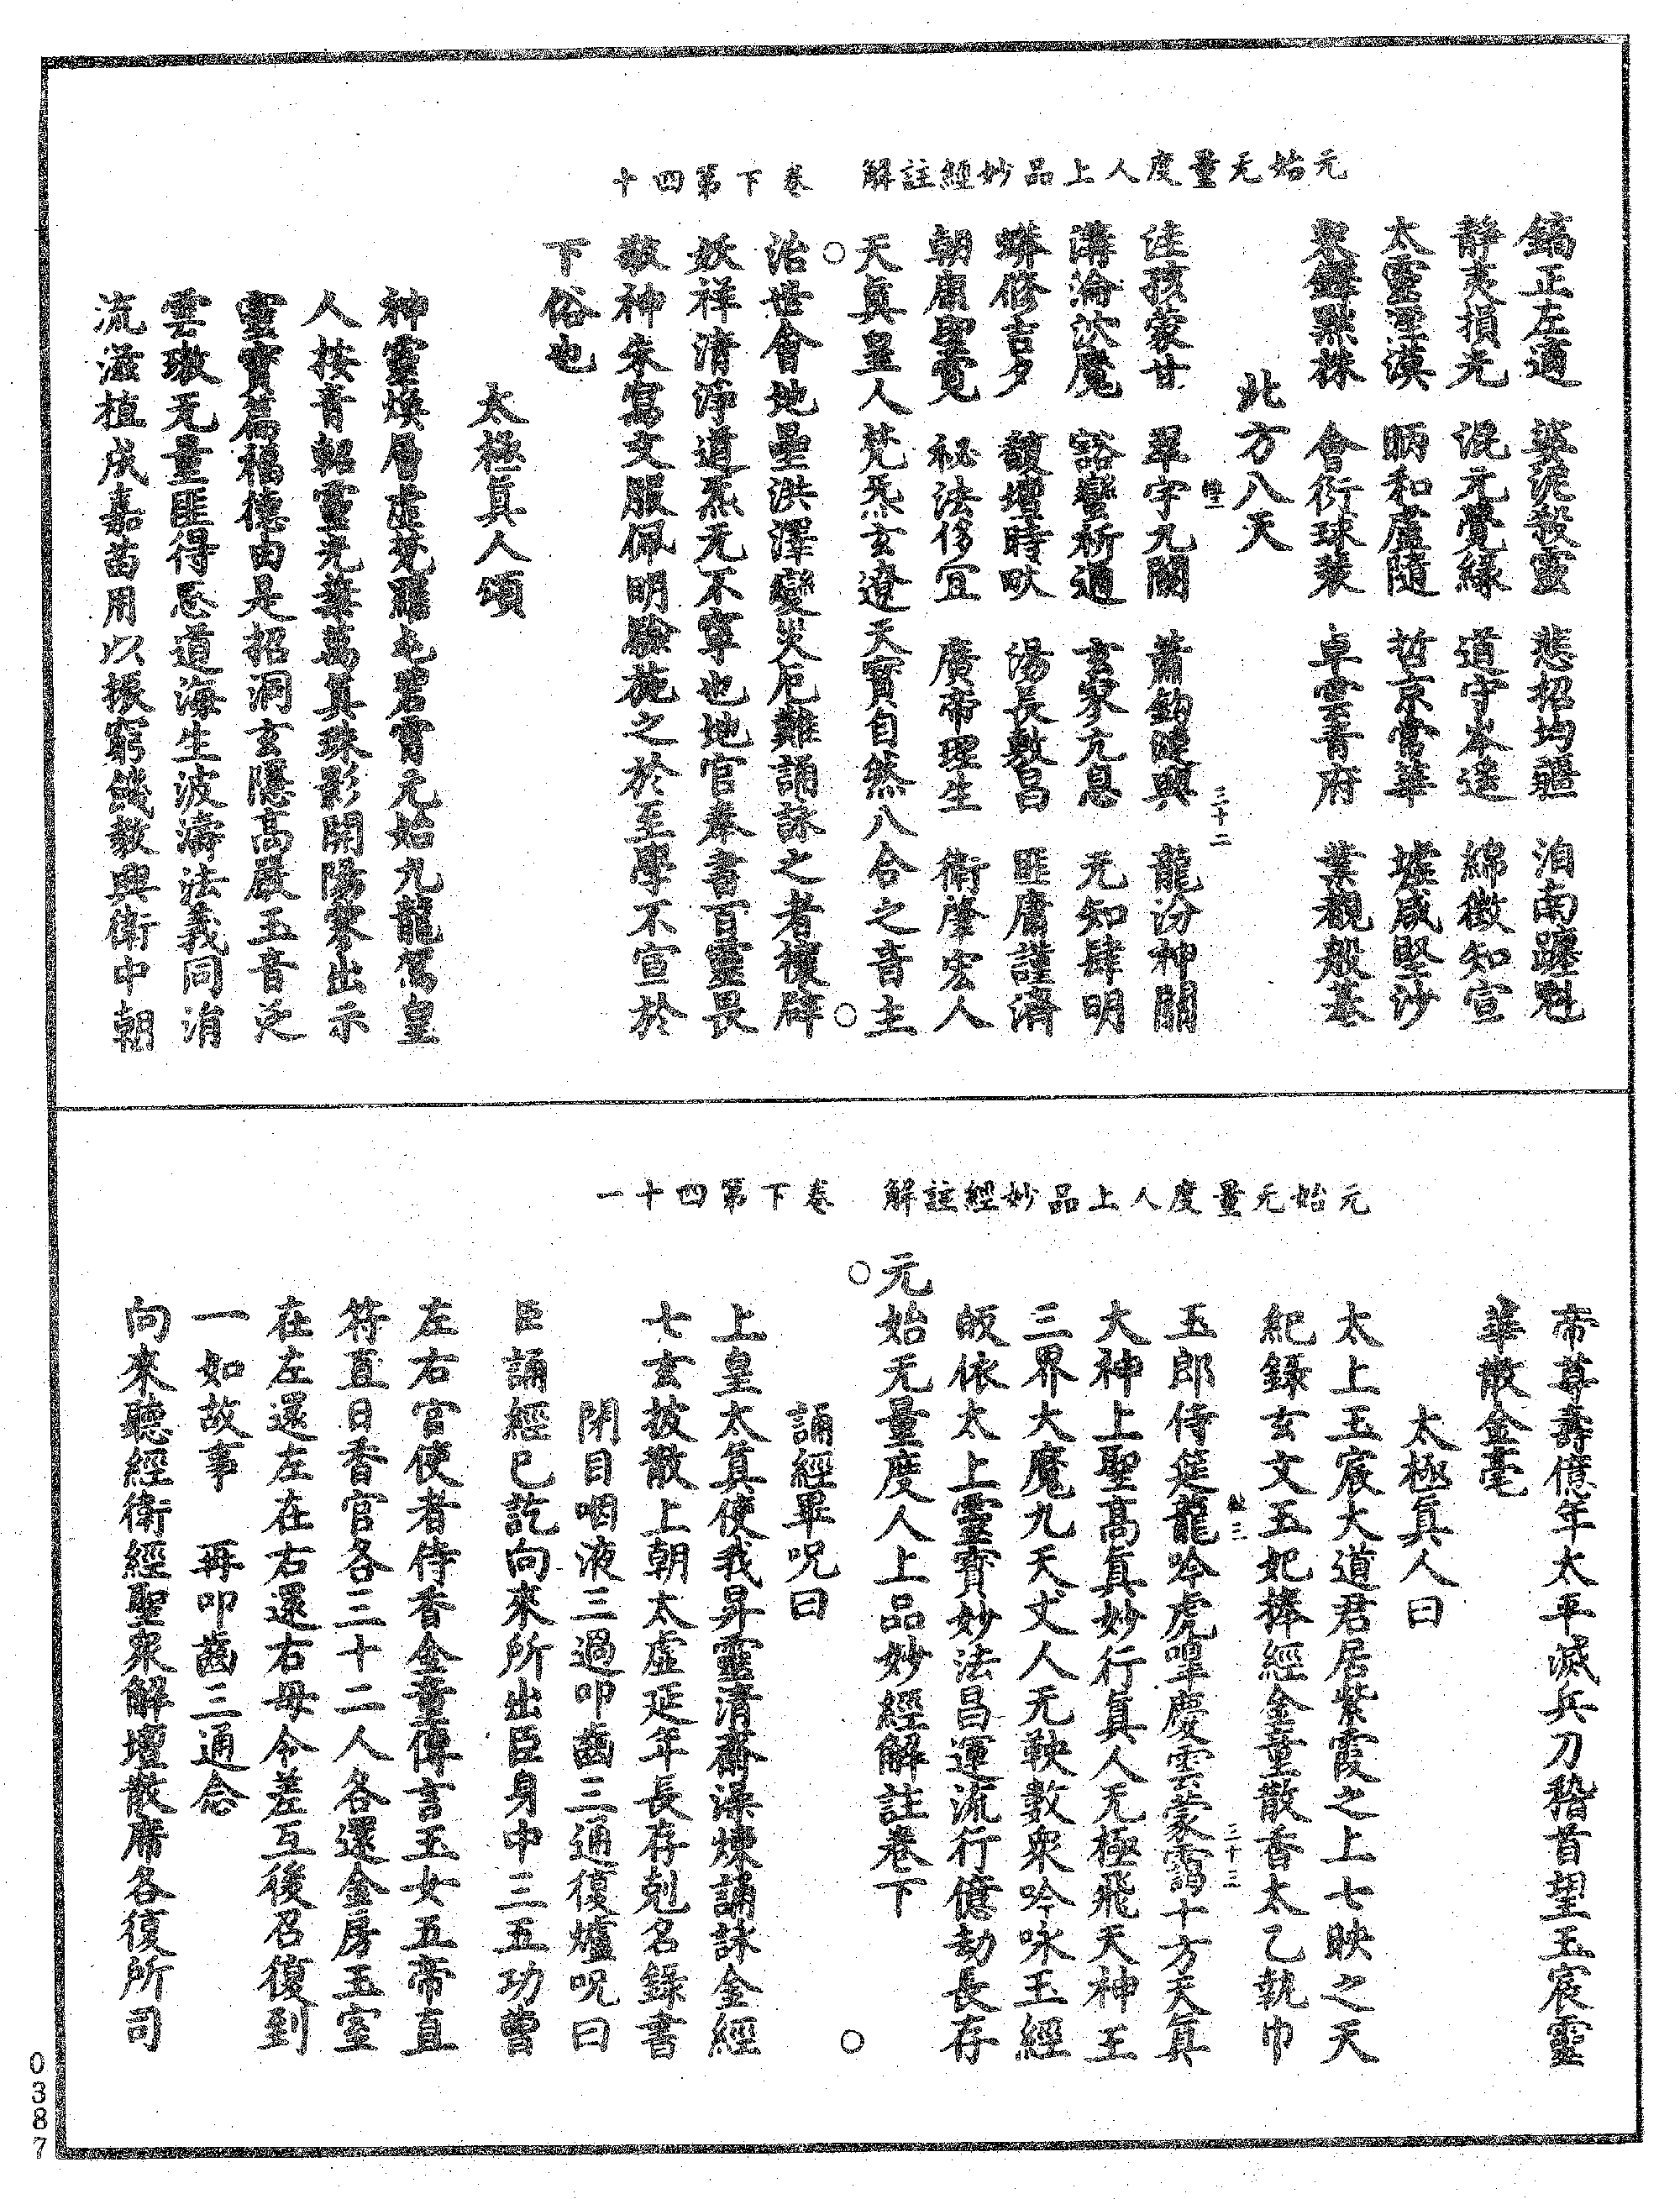 元始无量度人上品妙經註解　卷下第四十
鎬正左通　裴泥殺靈　悲招均疆　洎南躔魁
靜夷損元　混元覺緣　道宇本遥　綿微知宣
太靈運漠　昞和盧隨　哲京當華　墀咸堅沙
眾鐸默秣　會衍球裴　卓靈菁府　業觀般基
北方八天
佳孩蒙甘　翠宇元關　蕭鈞陡興　龍汾神關
溝淪汶魔　豁巒析通　玄眾亢息　元知肆明
蠐修吉夕　馥壇時畎　湯長敷昌　匪庸謹濟
朝康聖覽　秘法侈宜　廣帝理生　衛肇宏人
天真皇人梵炁玄遼天寶自然八合之音主
治世會地聖洪澤變災厄難誦詠之者禳辟
妖祥清淨道炁无不寧也地官奉書百靈畏
敬神朱寫文服佩明驗施之於至學不宣於
下俗也
太極真人頌
神靈煥層虛梵羅屯碧霄元始九龍駕皇
人按青軺靈光葉萬真珠影開陽寥出示
靈寶篇福德由是招洞玄隱高嚴玉音泛
雲璈无量匪得愚道海生波濤法義同涓
流滋植成嘉苗用以振窮餞教興衛中朝
元始无量度人上品妙經註解　卷下第四十一
帝尊壽億年太平滅兵刀稽首望玉宸靈
華散金毫
太極真人曰
太上玉宸大道君居紫霞之上七映之天
紀錄玄文玉妃捧經金童散香太乙執巾
玉郎侍筵龍吟虎嘷慶雲蒙靄十方天真
大神上聖高真妙行真人无極飛天神王
三界大魔九天丈人无鞅數眾吟咏玉經
皈依太上靈寶妙法昌運流行億劫長存
元始无量度人上品妙經解註卷下
誦經畢呪曰
上皇太真使我昇靈清齋澡煉誦詠金經
七玄披散上朝太虛延年長存剋名錄書
閉目咽液三過叩齒三通復爐呪曰
臣誦經已訖向來所出臣身中三五功曹
左右官使者侍香金童傳言玉女五帝直
符直日香官各三十二人各還金房玉室
在左還左在右還右毋令差互後召復到
一如故事　再叩齒三通念
向來聽經衛經聖眾解壇散席各復所司
0387